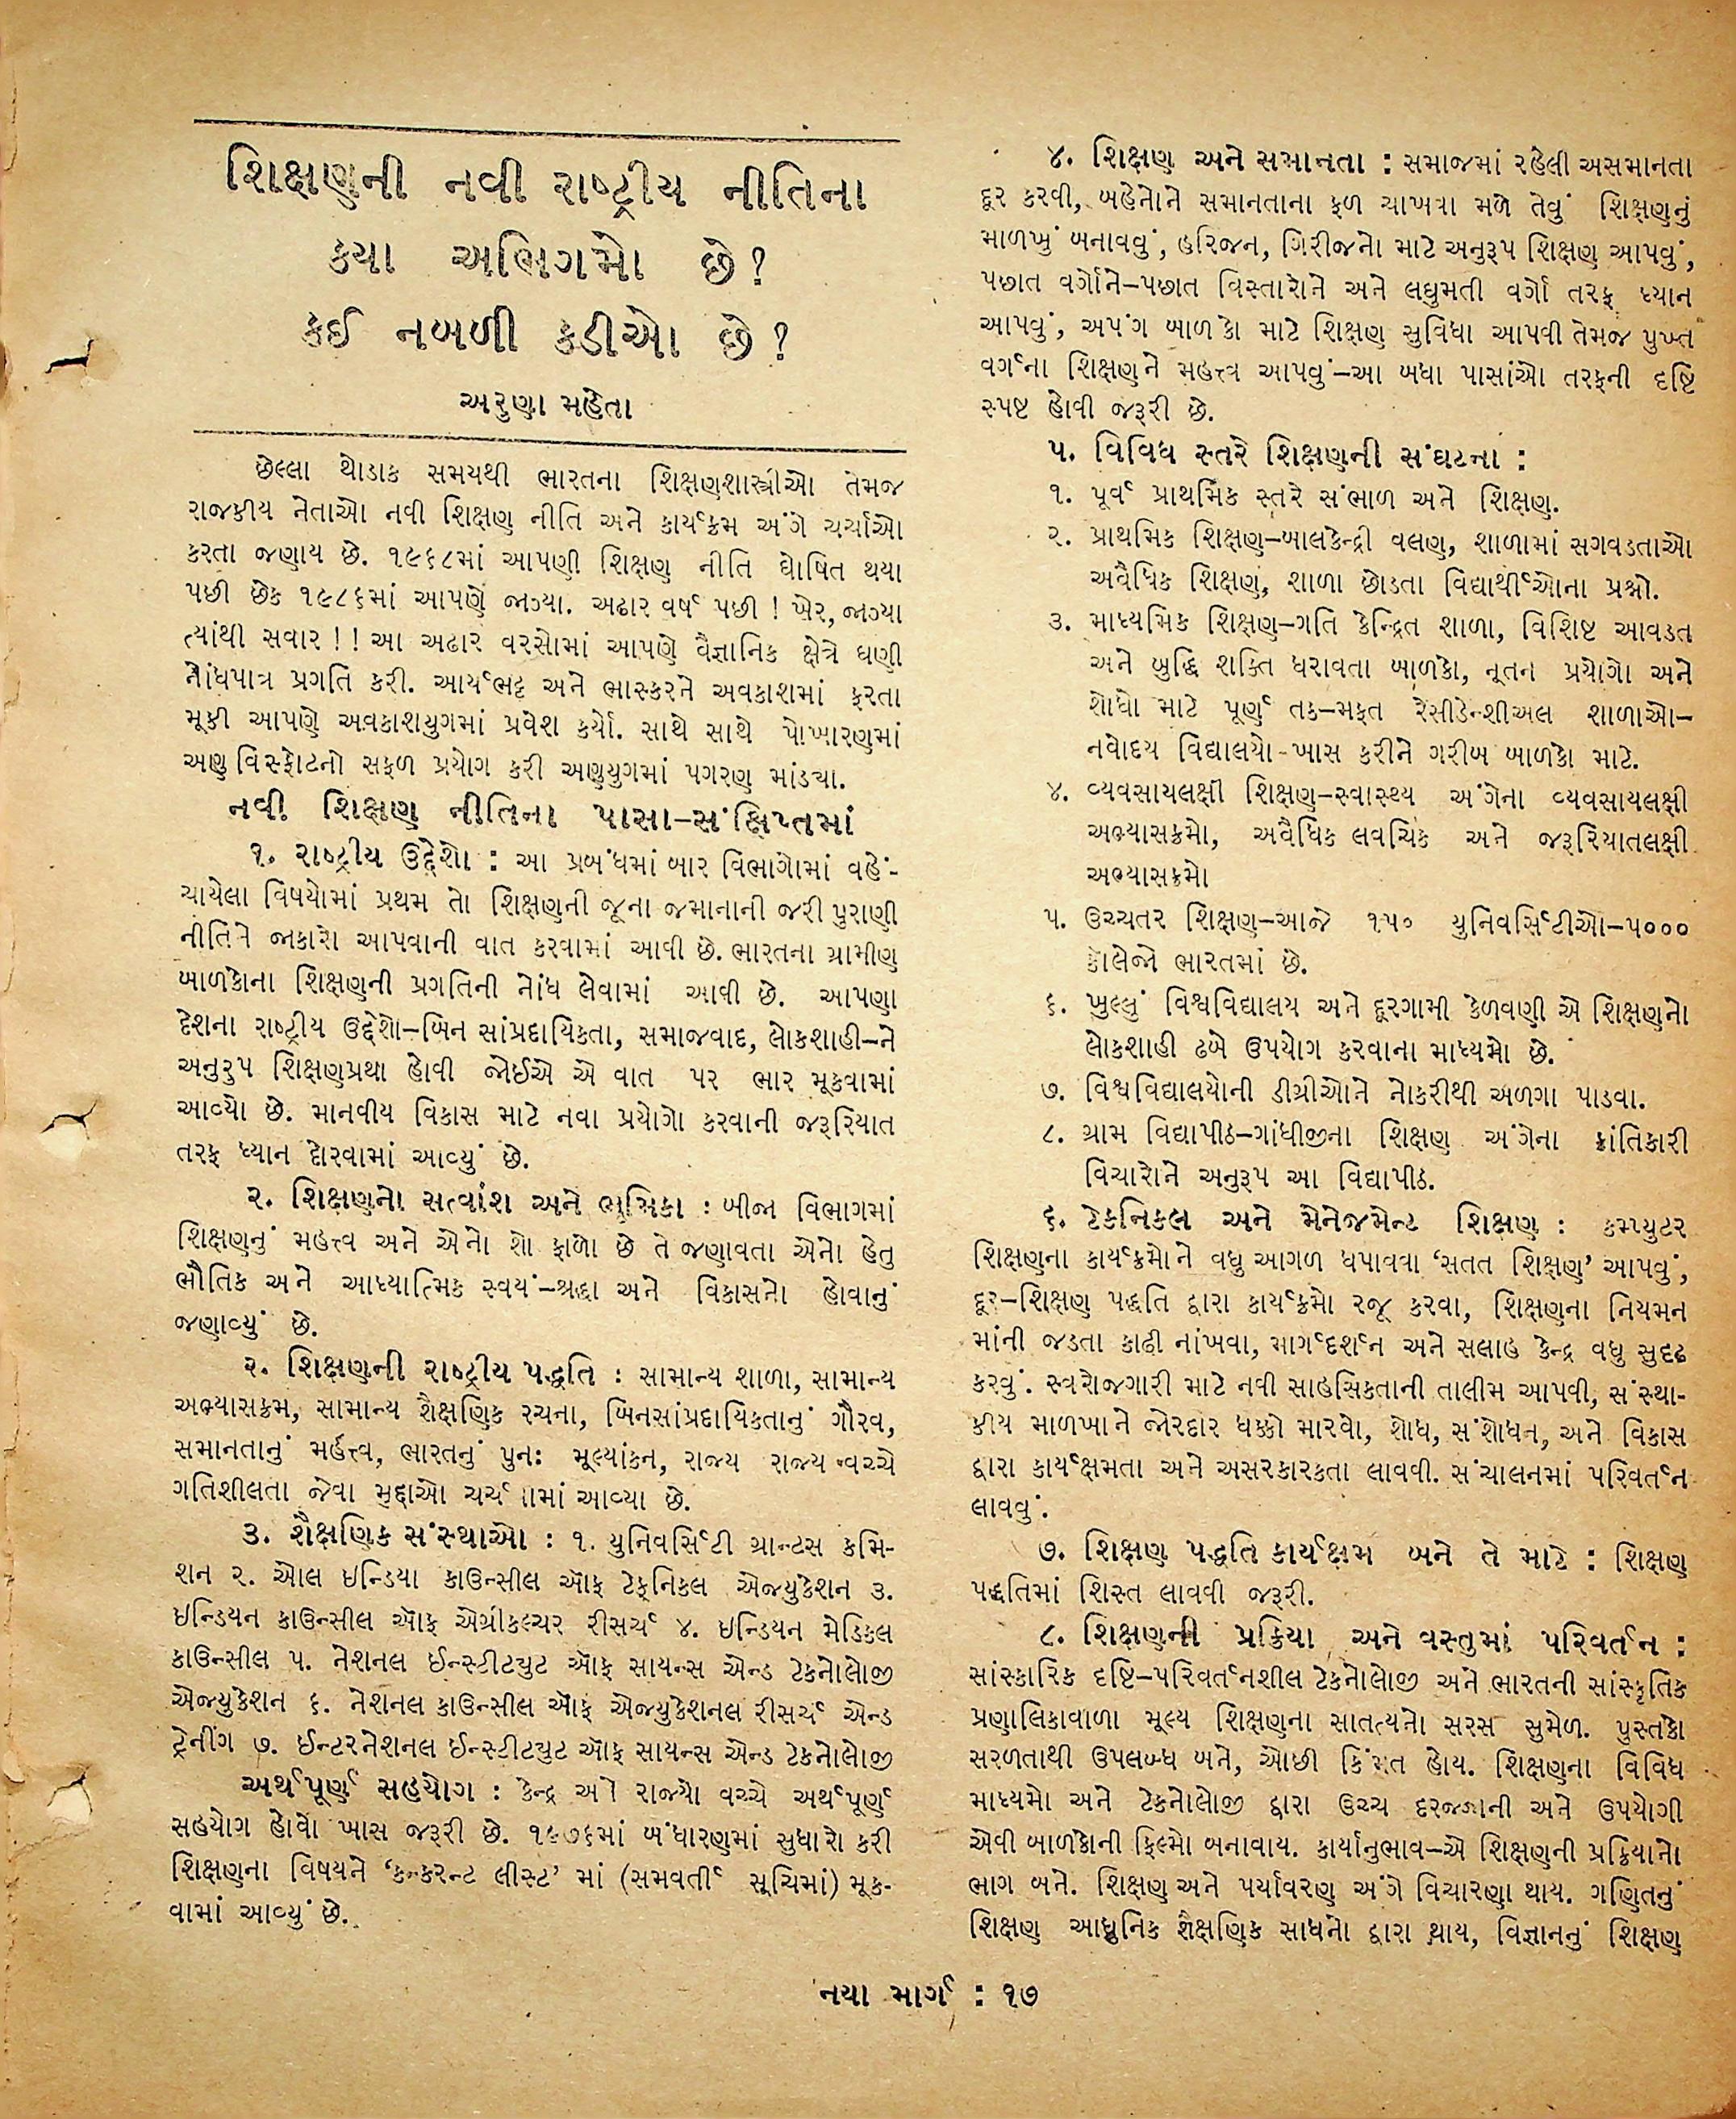 શિક્ષણની નવી રાષ્ટ્રીય નીતિના
કયા અભિગમો છે?
કઈ નબળી કડીઓ છે?
અરુણા મહેતા
છેલ્લા થોડાક સમયથી ભારતના શિક્ષણશાસ્ત્રીઓ તેમજ
રાજકીય નેતાઓ નવી શિક્ષણ નીતિ અને કાર્યક્રમ અંગે ચર્ચાઓ
કરતા જણાય છે. ૧૯૬૮માં આપણી શિક્ષણ નીતિ ઘોષિત થયા
પછી છેક ૧૯૮૬માં આપણે જાગ્યા. અઢાર વર્ષ પછી ! ખેર, જાગ્યા
ત્યાંથી સવાર !! આ અઢાર વરસોમાં આપણે વૈજ્ઞાનિક ક્ષેત્રે ઘણી
નોંધપાત્ર પ્રગતિ કરી. આર્યભટ્ટ અને ભાસ્કરને અવકાશમાં ફરતા
મૂકી આપણે અવકાશયુગમાં પ્રવેશ કર્યો. સાથે સાથે પોખારણમાં
અણુ વિસ્ફોટનો સફળ પ્રયોગ કરી અણુયુગમાં પગરણ માંડ્યા.
નવી શિક્ષણ નીતિના પાસા–સંક્ષિપ્તમાં
૧. રાષ્ટ્રીય ઉદ્દેશો : આ પ્રબંધમાં બાર વિભાગોમાં વહેં-
ચાયેલા વિષયોમાં પ્રથમ તો શિક્ષણની જૂના જમાનાની જરી પુરાણી
નીતિને જાકારો આપવાની વાત કરવામાં આવી છે. ભારતના ગ્રામીણ
બાળકોના શિક્ષણની પ્રગતિની નોંધ લેવામાં આવી છે. આપણા
દેશના રાષ્ટ્રીય ઉદ્દેશો–બિન સાંપ્રદાયિકતા, સમાજવાદ, લોકશાહી–ને
અનુરુપ શિક્ષણપ્રથા હોવી જોઈએ એ વાત પર ભાર મૂકવામાં
આવ્યો છે. માનવીય વિકાસ માટે નવા પ્રયોગો કરવાની જરૂરિયાત
તરફ ધ્યાન દોરવામાં આવ્યું છે.
૨. શિક્ષણનો સત્વાંશ અને ભૂમિકા : બીજા વિભાગમાં
શિક્ષણનું મહત્ત્વ અને એનો શો ફાળો છે તે જણાવતા એનો હેતુ
ભૌતિક અને આધ્યાત્મિક સ્વયં–શ્રદ્ધા અને વિકાસનો હોવાનું
જણાવ્યું છે.
૨. શિક્ષણની રાષ્ટ્રીય પદ્ધતિ : સામાન્ય શાળા, સામાન્ય
અભ્યાસક્રમ, સામાન્ય શૈક્ષણિક રચના, બિનસાંપ્રદાયિકતાનું ગૌરવ,
સમાનતાનું મહત્ત્વ, ભારતનું પુનઃ મૂલ્યાંકન, રાજ્ય રાજ્ય વચ્ચે
ગતિશીલતા જેવા મુદ્દાઓ ચર્ચવામાં આવ્યા છે.
૩. શૈક્ષણિક સંસ્થાઓ : ૧. યુનિવર્સિટી ગ્રાન્ટસ કમિ-
શન ૨. ઓલ ઇન્ડિયા કાઉન્સીલ ઑફ ટેક્નિકલ એજ્યુકેશન ૩.
ઇન્ડિયન કાઉન્સીલ ઑફ એગ્રીકલ્ચર રીસર્ચ ૪. ઇન્ડિયન મેડિકલ
કાઉન્સીલ ૫. નેશનલ ઈન્સ્ટીટ્યુટ ઑફ સાયન્સ એન્ડ ટેકનોલોજી
એજ્યુકેશન ૬. નેશનલ કાઉન્સીલ ઑફ એજ્યુકેશનલ રીસર્ચ એન્ડ
ટ્રેનીંગ ૭. ઈન્ટરનેશનલ ઈન્સ્ટીટ્યુટ ઑફ સાયન્સ એન્ડ ટેકનોલોજી
અર્થપૂર્ણ સહયોગ : કેન્દ્ર અને રાજ્યો વચ્ચે અર્થપૂર્ણ
સહયોગ હોવો ખાસ જરૂરી છે. ૧૯૭૬માં બંધારણમાં સુધારો કરી
શિક્ષણના વિષયને ‘કન્કરન્ટ લીસ્ટ’ માં (સમવર્તી સૂચિમાં) મૂક-
વામાં આવ્યું છે.
૪. શિક્ષણ અને સમાનતા : સમાજમાં રહેલી અસમાનતા
દૂર કરવી, બહેનોને સમાનતાના ફળ ચાખવા મળે તેવું શિક્ષણનું
માળખું બનાવવું, હરિજન, ગિરીજનો માટે અનુરૂપ શિક્ષણ આપવું,
પછાત વર્ગોને–પછાત વિસ્તારોને અને લઘુમતી વર્ગો તરફ ધ્યાન
આપવું, અપંગ બાળકો માટે શિક્ષણ સુવિધા આપવી તેમજ પુખ્ત
વર્ગના શિક્ષણને મહત્ત્વ આપવું–આ બધા પાસાંઓ તરફની દૃષ્ટિ
સ્પષ્ટ હોવી જરૂરી છે.
૫. વિવિધ સ્તરે શિક્ષણની સંઘટના :
૧. પૂર્વ પ્રાથમિક સ્તરે સંભાળ અને શિક્ષણ.
૨. પ્રાથમિક શિક્ષણ–બાલકેન્દ્રી વલણ, શાળામાં સગવડતાઓ
અવૈધિક શિક્ષણ, શાળા છોડતા વિદ્યાર્થીઓના પ્રશ્નો.
૩. માધ્યમિક શિક્ષણ–ગતિ કેન્દ્રિત શાળા, વિશિષ્ટ આવડત
અને બુદ્ધિ શક્તિ ધરાવતા બાળકો, નૂતન પ્રયોગો અને
શોધો માટે પૂર્ણ તક–મફત રેસીડેન્શીઅલ શાળાઓ–
નવોદય વિદ્યાલયો-ખાસ કરીને ગરીબ બાળકો માટે.
૪. વ્યવસાયલક્ષી શિક્ષણ–સ્વાસ્થ્ય અંગેના વ્યવસાયલક્ષી
અભ્યાસક્રમો, અવૈધિક લવચિક અને જરૂરિયાતલક્ષી
અભ્યાસક્રમો
૫. ઉચ્ચતર શિક્ષણ–આજે ૧૫૦ યુનિવર્સિટીઓ–૫૦૦૦
કોલેજો ભારતમાં છે.
૬. ખુલ્લું વિશ્વવિદ્યાલય અને દૂરગામી કેળવણી એ શિક્ષણનો
લોકશાહી ઢબે ઉપયોગ કરવાના માધ્યમો છે.
૭. વિશ્વવિદ્યાલયોની ડીગ્રીઓને નોકરીથી અળગા પાડવા.
૮. ગ્રામ વિદ્યાપીઠ–ગાંધીજીના શિક્ષણ અંગેના ક્રાંતિકારી
વિચારોને અનુરૂપ આ વિદ્યાપીઠ.
૬. ટેકનિકલ અને મેનેજમેન્ટ શિક્ષણ : કમ્પ્યુટર
શિક્ષણના કાર્યક્રમોને વધુ આગળ ધપાવવા ‘સતત શિક્ષણ’ આપવું,
દૂર–શિક્ષણ પદ્ધતિ દ્વારા કાર્યક્રમો રજૂ કરવા, શિક્ષણના નિયમન
માંની જડતા કાઢી નાંખવા, માર્ગદર્શન અને સલાહ કેન્દ્ર વધુ સુદૃઢ
કરવું. સ્વરોજગારી માટે નવી સાહસિકતાની તાલીમ આપવી, સંસ્થા-
કીય માળખાને જોરદાર ધક્કો મારવો, શોધ, સંશોધન, અને વિકાસ
દ્વારા કાર્યક્ષમતા અને અસરકારકતા લાવવી. સંચાલનમાં પરિવર્તન
લાવવું.
૭. શિક્ષણ પદ્ધતિ કાર્યક્ષમ બને તે માટે : શિક્ષણ
પદ્ધતિમાં શિસ્ત લાવવી જરૂરી.
૮. શિક્ષણની પ્રક્રિયા અને વસ્તુમાં પરિવર્તન :
સાંસ્કારિક દૃષ્ટિ–પરિવર્તનશીલ ટેકનોલોજી અને ભારતની સાંસ્કૃતિક
પ્રણાલિકાવાળા મૂલ્ય શિક્ષણના સાતત્યનો સરસ સુમેળ. પુસ્તકો
સરળતાથી ઉપલબ્ધ બને, ઓછી કિંમત હોય. શિક્ષણના વિવિધ
માધ્યમો અને ટેકનોલોજી દ્વારા ઉચ્ચ દરજ્જાની અને ઉપયોગી
એવી બાળકોની ફિલ્મો બનાવાય. કાર્યાનુભાવ–એ શિક્ષણની પ્રક્રિયાનો
ભાગ બને. શિક્ષણ અને પર્યાવરણ અંગે વિચારણા થાય. ગણિતનું
શિક્ષણ આધુનિક શૈક્ષણિક સાધનો દ્વારા થાય, વિજ્ઞાનનું શિક્ષણ
નયા માર્ગ : ૧૭